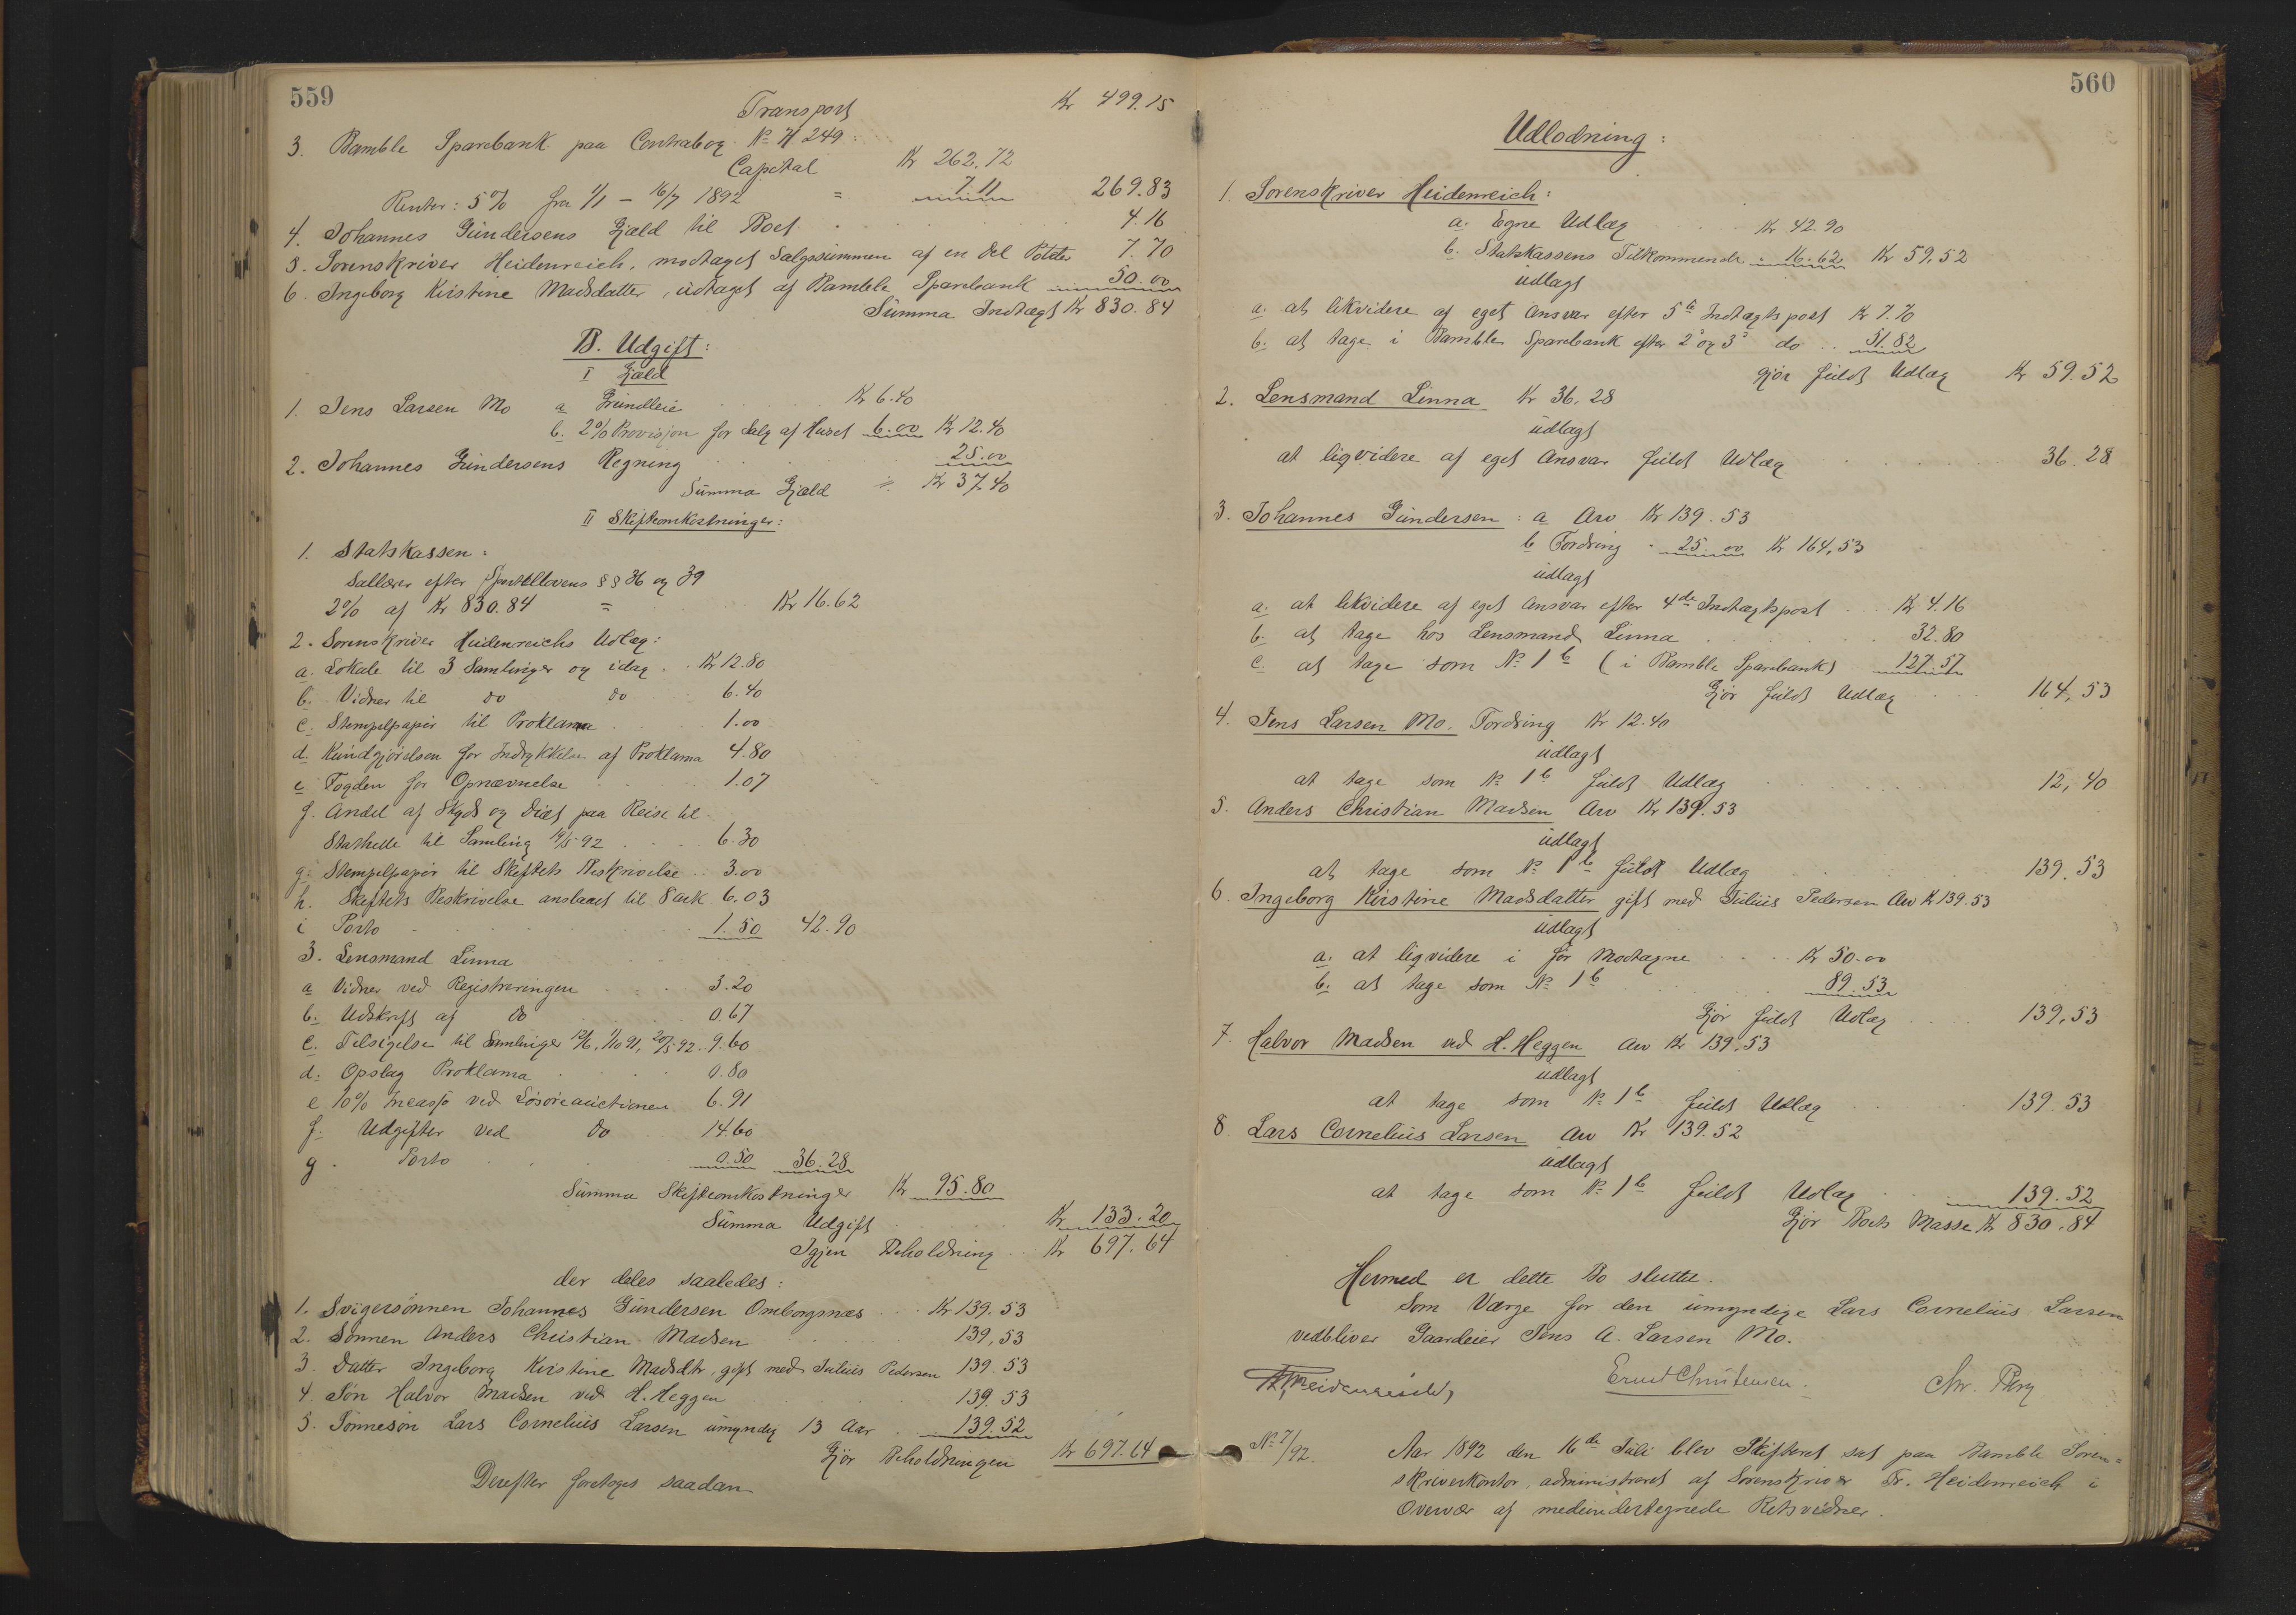 559
Transport Kr 499.15
3. Bamble Sparebank paa Contrabog No H 249:
Capital Kr 262.72
Renter: 5% fra 1/1 - 16/7 1892 = 7.11 269.83
4. Johannes Gundersens Gjæld til Boet 4.16
5. Sorenskriver Heidenreich, modtaget Salgssummen af en del Poteter 7.70
6. Ingeborg Kirstine Madsdatter, udtaget af Bamble Sparebank 50.00
Summa Indtægt Kr 830.84
B. Udgift:
I Gjæld
1. Jens Larsen Mo a Grundleie Kr 6.40
b. 2% Provisjon for Salg af Huset 6.00 Kr 12.40
2. Johannes Gundersens Regning 25.00
Summa Gjæld Kr 37.40
II Skifteomkostninger:
1. Statskassen:
Sallærer efter Sportellovens §§ 36 og 39
2% af Kr 830.84 = Kr 16.62
2. Sorenskriver Heidenreichs Udlæg:
a. Lokale til 3 Samlinger og idag Kr 12.80
b. Vidner til do do 6.40
c. Stempelpapir til Proklama 1.00
d. Kundgjørelsen for Indrykkelse af Proklama 4.80
e Fogden for Opnævnelse 1.07
f. Andel af Skyds og Diæt paa Reise til
Stathelle til Samling 19/5 92 6.30
g. Stempelpapir til Skiftets Beskrivelse 3.00
h. Skiftets Beskrivelse anslaaet til 8 ark 6.03
i Porto 1.50 42.90
3. Lensmand Linna
a Vidner ved Registreringen 3.20
b. Udskrift af do 0.67
c. Tilsigelse til Samlinger 12/6, 1/10 91, 20/5 92 9.60
d. Opslag Proklama 0.80
e 10% Incasso ved Løsøreauctionen 6.91
f. Udgifter ved do 14.60
g. Porto 0.50 36.28
Summa Skifteomkostninger Kr 95.80
Summa Udgift Kr 133.20
Igjen Beholdning Kr 697.64
der deles saaledes:
1. Svigersønnen Johannes Gundersen Omborgsnæs Kr 139.53
2. Sønnen Anders Christian Madsen 139,53
3. Datter Ingeborg Kirstine Madsdtr, gift med Julius Pedersen 139.53
4. Søn Halvor Madsen ved H. Heggen 139.53
5. Sønnesøn Lars Cornelius Larsen umyndig 13 Aar 139.52
Gjør Beholdningen Kr 697.64
Derefter foretoges saadan
560
Udlodning:
1. Sorenskriver Heidenreich:
a. Egne Udlæg Kr 42.90
b. Statskassens Tilkommende 16.62 Kr 59.52
udlagt
a. at likvidere af eget Ansvar efter 5te Indtægtspost Kr 7.70
b. at tage i Bamble Sparebank efter 2 og 3 do 51.82
gjør fuldt Udlæg Kr 59.52
2. Lensmand Linna Kr 36.28
udlagt
at liqvidere af eget Ansvar fuldt Udlæg 36.28
3. Johannes Gundersen: a Arv Kr 139.53
b Fordring 25.00 Kr 164,53
udlagt
a. at likvidere af eget Ansvar efter 4de Indtægtspost Kr 4.16
b. at tage hos Lensmand Linna 32.80
c. at tage som No 1 b (i Bamble Sparebank) 127.57
Gjør fuldt Udlæg 164,53
4. Jens Larsen Mo. Fordring Kr 12.40
udlagt
at tage som No 1 b fuldt Udlæg 12,40
5. Anders Christian Madsen Arv Kr 139.53
udlagt
at tage som No 1 b fuldt Udlæg 139.53
6. Ingeborg Kirstine Madsdatter gift med Julius Pedersen Arv Kr 139.53
udlagt
a. at liqvidere i før Modtagne Kr 50.00
b. at tage som No 1 b 89.53
Gjør fuldt Udlæg 139,53
7. Halvor Madsen ved H. Heggen Arv Kr 139.53
udlagt
at tage som No 1 b fuldt Udlæg 139.53
8 Lars Cornelius Larsen Arv Kr 139.52
udlagt
at tage som No 1 b fuldt Udlæg 139.52
Gjør Boets Masse Kr 830.84
Hermed er dette Bo sluttet.
Som Værge for den umyndige Lars Cornelius Larsen
vedbliver Gaardeier Jens A. Larsen Mo.
Fr. Heidenreich Ernst Christensen. Chr. Berg
No 7/92. Aar 1892 den 16de Juli blev Skifteret sat paa Bamble Soren=
skriverkontor, administreret af Sorenskriver Fr. Heidenreich i
Overvær af medundertegnede Retsvidner.